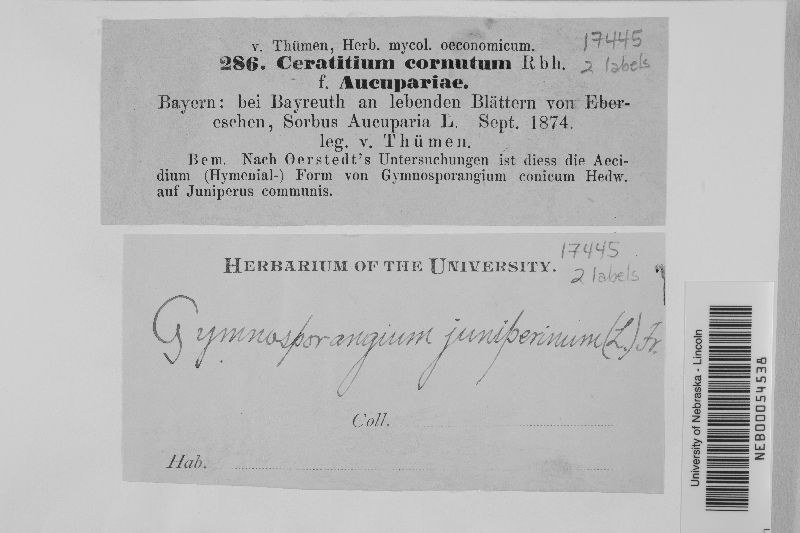 v. Thümen, Herb. mycol. oeconomicum.
17445
2 labels
286. Ceratitium cornutum Rbh.
f. Aucupariae.
Bayern: bei Bayreuth an lebenden Blättern von Eber-
eschen, Sorbus Aucuparia L. Sept. 1874.
leg. v. Thümen.
Bem. Nach Oerstedt's Untersuchungen ist diess die Aeci-
dium (Hymenial-) Form von Gymnosporangium conicum Hedw.
auf Juniperus communis.
HERBARIUM OF THE UNIVERSITY.
17445
2 labels
Gymnosporangium juniperinum (L.) Fr.
Coll.
Hab.
University of Nebraska - Lincoln
NEB00054538